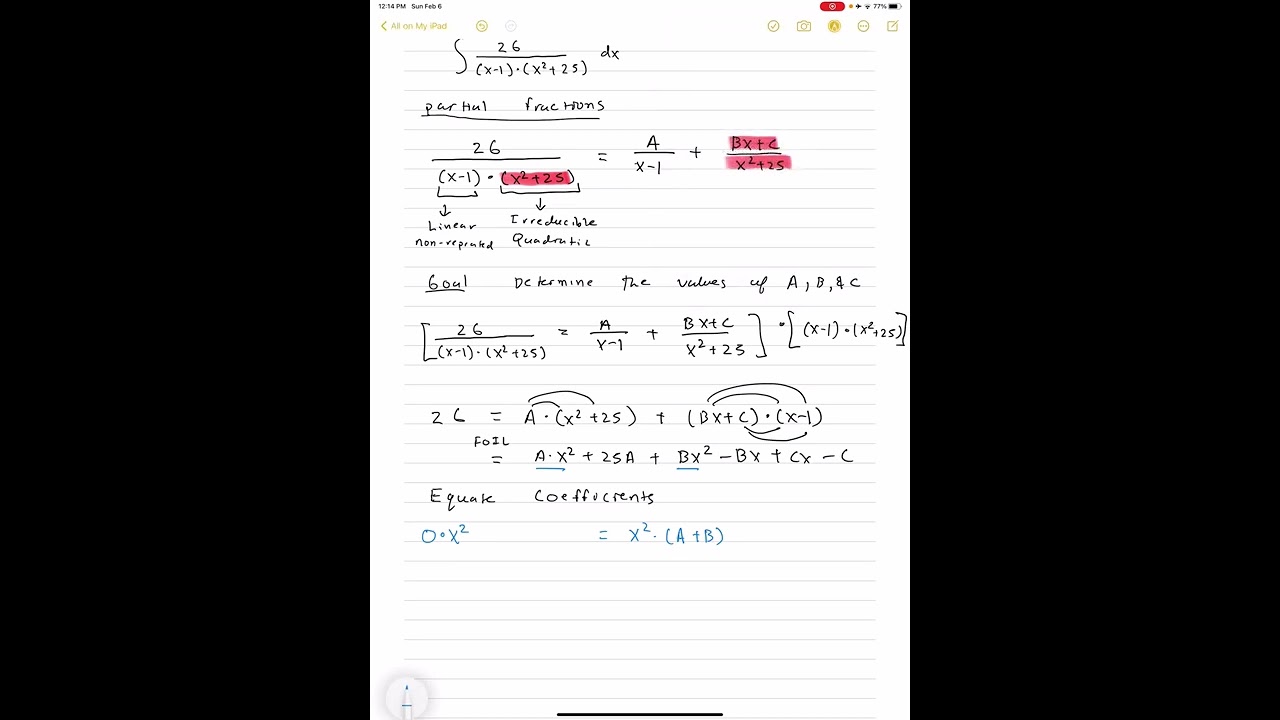 12:14 PM Sun Feb 6
77%
All on My iPad
∫ 26 / (x-1)·(x²+25) dx
partial fractions
26 / (x-1)·(x²+25) = A / x-1 + Bx+C / x²+25
Linear non-repeated
Irreducible Quadratic
Goal Determine the values of A, B, & C
[ 26 / (x-1)·(x²+25) = A / x-1 + Bx+C / x²+25 ] · [(x-1)·(x²+25)]
26 = A·(x²+25) + (Bx+C)·(x-1)
FOIL
= A·x² + 25A + Bx² - Bx + Cx - C
Equate Coefficients
0·x² = x²·(A+B)